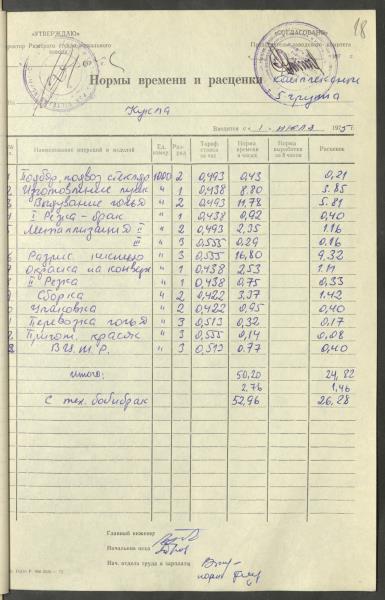 18
«УТВЕРЖДАЮ»
«СОГЛАСОВАНО»
Нормы времени и расценки
комплексные
5 группа
На
Кукла
Вводятся с « 1 » 1975 г.
Наименование операций и изделий
Ед. номер
Раз-ряд
Тариф. ставка за час
Норма времени в часах
Норма выработки за 8 часов
Расценок
Подбор, подвоз стеклодр 1000 2 0,493 0,43 0,21
Изготовление пулек " 1 0,438 8.80 3.85
Выдувание голья " 2 0,493 11,78 5.81
I Резка - брак " 1 0,438 0,92 0,40
Металлизация II " 2 0,493 2.35 1.16
III " 3 0,555 0.29 0.16
" 3 0,555 16,80 9,32
Окраска на конвеер " 1 0,438 2.53 1.11
II Резка " 1 0,438 0.75 0,33
Сборка " 2 0,422 3.37 1.42
Упаковка " 2 0,422 0,95 0,40
Перевозка голья " 3 0,513 0,32 0.17
Пригот. красок " 3 0,555 0,14 0,08
" 3 0,513 0.77 0,40
Итого: 50,20 24,82
2.76 1,46
С тех. бой и брак 52,96 26,28
Главный инженер
Начальник цеха
Нач. отдела труда и зарплаты